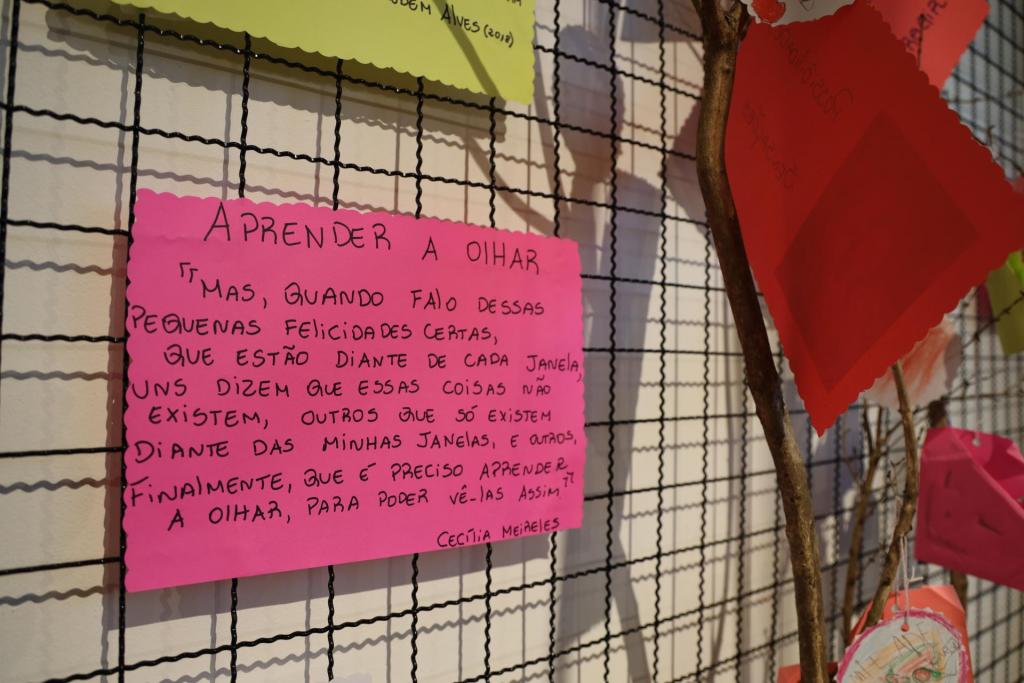 ALVES (2012)
APRENDER A OLHAR
"MAS, QUANDO FALO DESSAS
PEQUENAS FELICIDADES CERTAS,
QUE ESTÃO DIANTE DE CADA JANELA,
UNS DIZEM QUE ESSAS COISAS NÃO
EXISTEM, OUTROS QUE SÓ EXISTEM
DIANTE DAS MINHAS JANELAS, E OUTROS,
FINALMENTE, QUE É PRECISO APRENDER
A OLHAR, PARA PODER VÊ-LAS ASSIM."
CECÍLIA MEIRELES